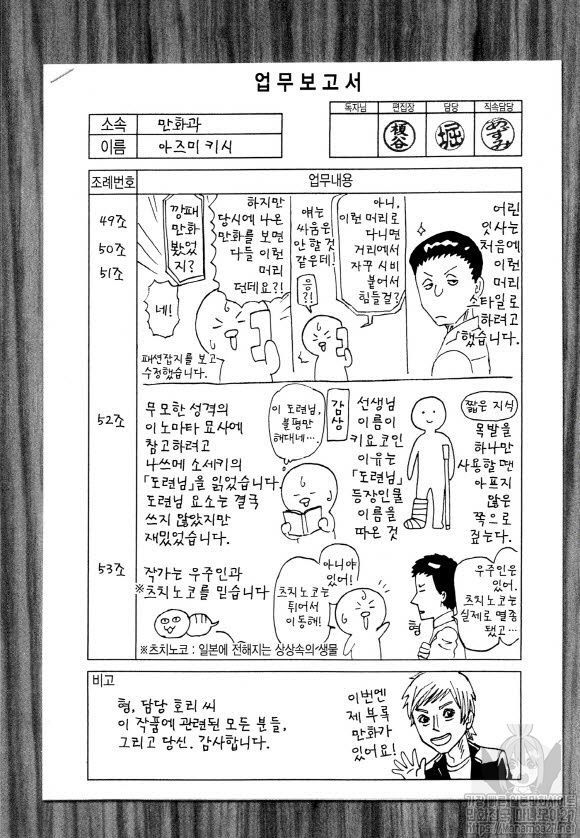 업무보고서
독자님
편집장
담당
직속담당
榎谷
堀
あずみ
소속
만화과
이름
아즈미 키시
조례번호
업무내용
49조
50조
51조
어린
잇사는
처음에
이런
머리
스타일로
하려고
했습니다.
아니,
이런 머리로
다니면
거리에서
자꾸 시비
붙어서
힘들걸?
응?!
얘는
싸움은
안 할 것
같은데!
하지만
당시에 나온
만화를 보면
다들 이런
머리
던데요?!
깡패
만화
봤었
지?
네!
패션잡지를 보고
수정했습니다.
52조
짧은 지식
목발을
하나만
사용할 땐
아프지
않은
쪽으로
짚는다.
선생님
이름이
키요코인
이유는
「도련님」
등장인물
이름을
따온 것
감상
이 도련님,
불평만
해대네…
무모한 성격의
이노마타 묘사에
참고하려고
나쓰메 소세키의
「도련님」을 읽었습니다.
도련님 요소는 결국
쓰지 않았지만
재밌었습니다.
53조
작가는 우주인과
※츠치노코를 믿습니다
우주인은
있어.
츠치노코는
실제로 멸종
됐고…
형
아니야
있어!
츠치노코는
튀어서
이동해!
※츠치노코 : 일본에 전해지는 상상속의 생물
비고
형, 담당 호리 씨
이 작품에 관련된 모든 분들,
그리고 당신. 감사합니다.
이번엔
제 부록
만화가
있어요!